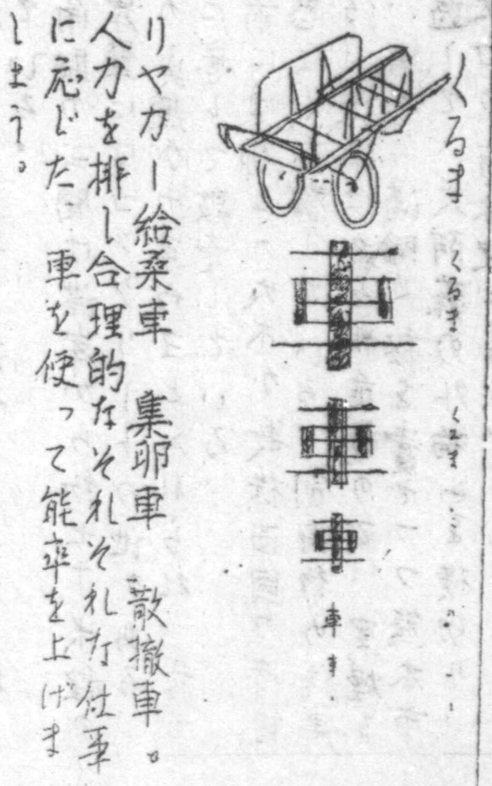 くるま くるま くるま
車 車
リヤカー 給桑車 集卵車 散撤車。
人力を排し合理的なそれぞれな仕事
に応じた 車を使って能率を上げま
しょう。